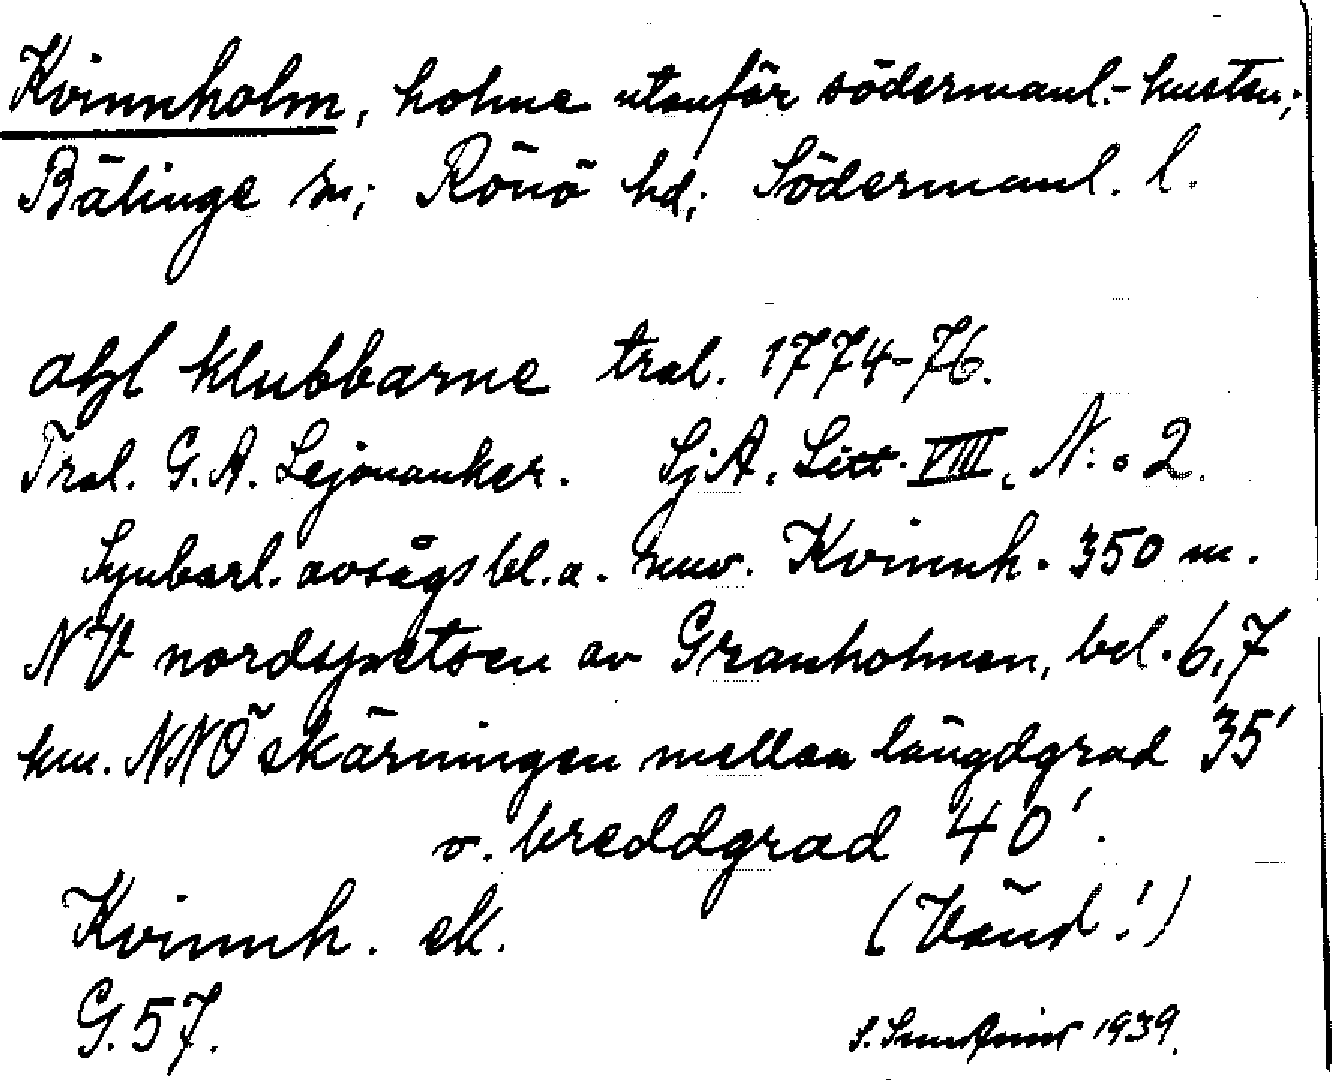 Kvinnholm, holme utanför södermanl.-kusten;
Bälinge sn; Rönö hd; Södermanl. l.
Klubbarne tral. 1774-76.
Tral. G. A. Lejonanker. Sj.A. Litt. VIII. N:o 2.
Synbarl. avsågs bl.a. nuv. Kvinnh. 350 m.
NV nordspetsen av Granholmen, bel. 6,7
km. NNÖ skärningen mellan längdgrad 35'
o. breddgrad 40'.
Kvinnh. ek. (Vänd!)
G. 57.
1939.